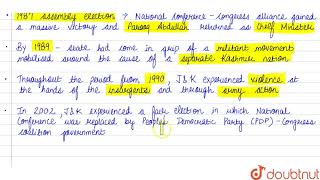 1987 Assembly election → National Conference - Congress alliance gained
a massive victory and Farooq Abdullah returned as Chief Minister
By 1989 - state had come in grip of a militant movement
mobilised around the cause of a separate Kashmir nation
Throughout the period from 1990, J&K experienced violence at
the hands of the insurgents and through army action
In 2002, J&K experienced a fair election in which National
Conference was replaced by Peoples Democratic Party (PDP) - Congress
coalition government
doubtnut